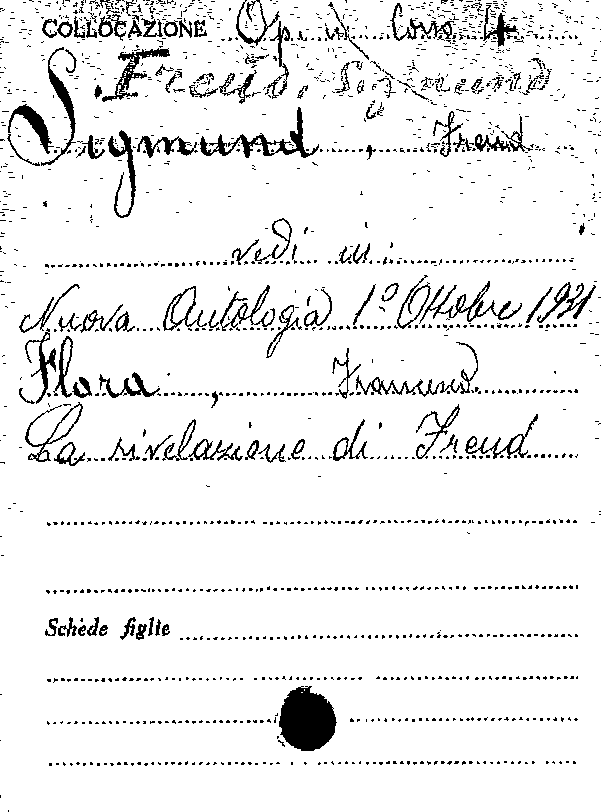 COLLOCAZIONE Op. in Cons 4
S. Freud, Sigmund
Sigmund, Freud
vedi in:
Nuova Antologia 1º Ottobre 1931
Flora,
La rivelazione di Freud
Schede figlie